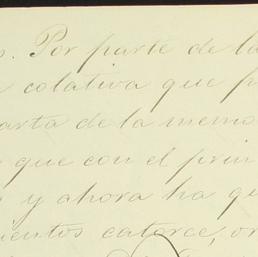 s. Por parte de la
colativa que p
arta de la memo
que con el prin
y ahora ha qu
ientos catorce, or